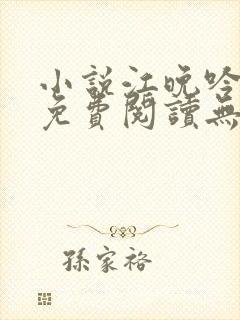 小說江晚吟
免費閱讀無
孫家裕